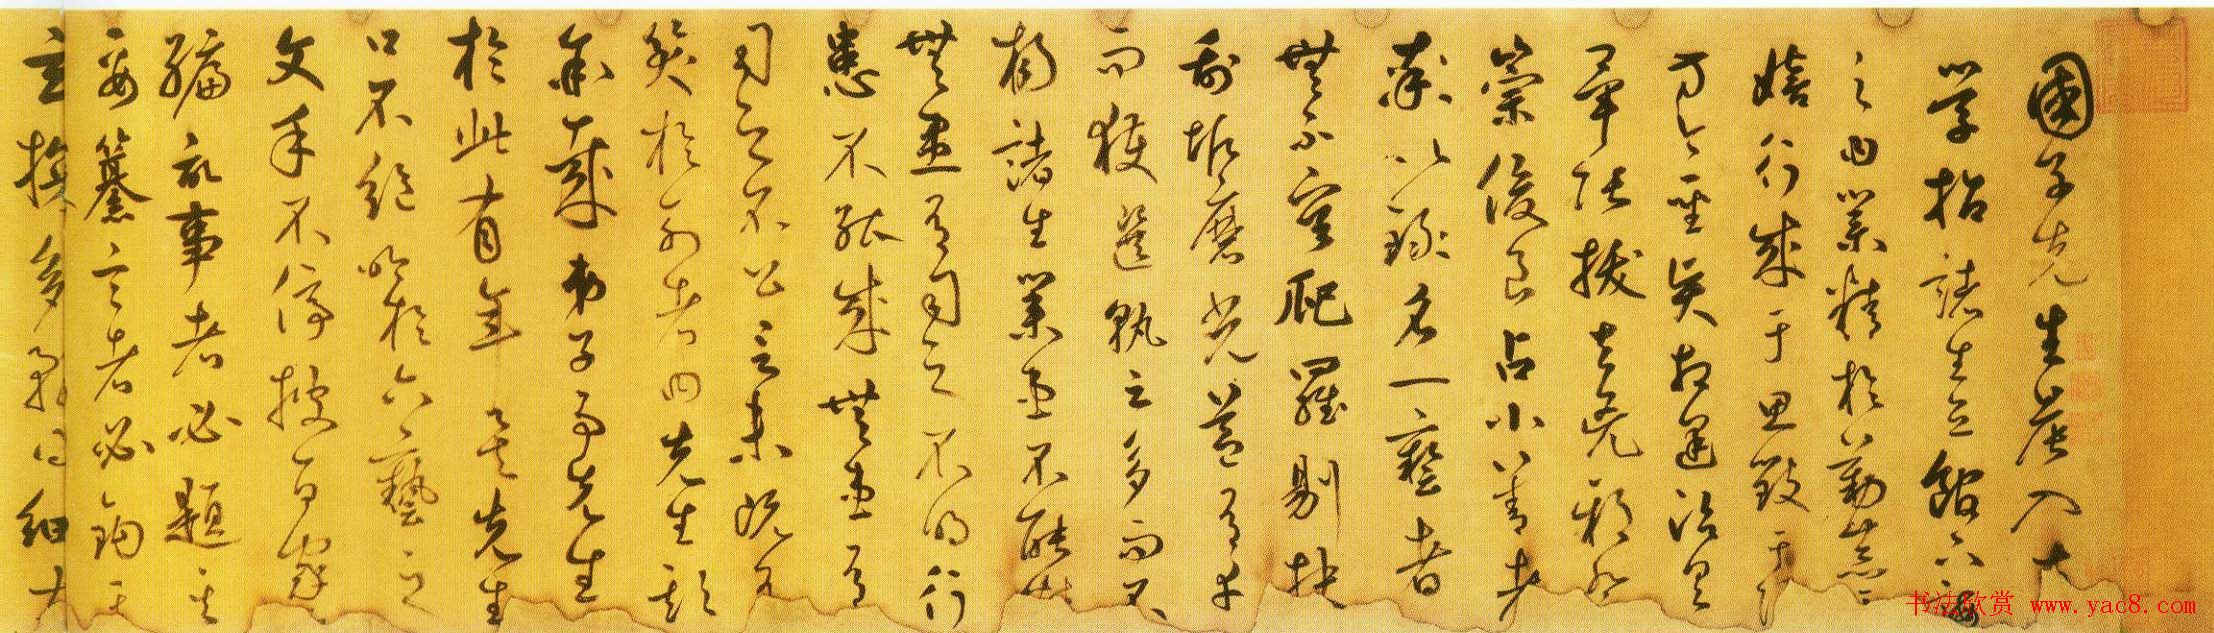 國子先生晨入大
學招諸生立館下誨
之曰業精於勤荒于
嬉行成于思毀于
方今聖賢相逢治具
畢張拔去兇邪登
崇俊良占小善者
率以錄名一藝者
無不庸爬羅剔抉
刮垢磨光蓋有幸
而獲選孰云多而不
揚諸生業患不能精
無患有司之不明行
患不能成無患有
司之不公言未既有
笑於列者曰先生欺
余哉弟子事先生
於此有年矣先生
口不絕吟於六藝之
文手不停披百家
編記事者必題其
要纂言者必鉤其
玄多務得細大
书法欣赏 www.yac8.com